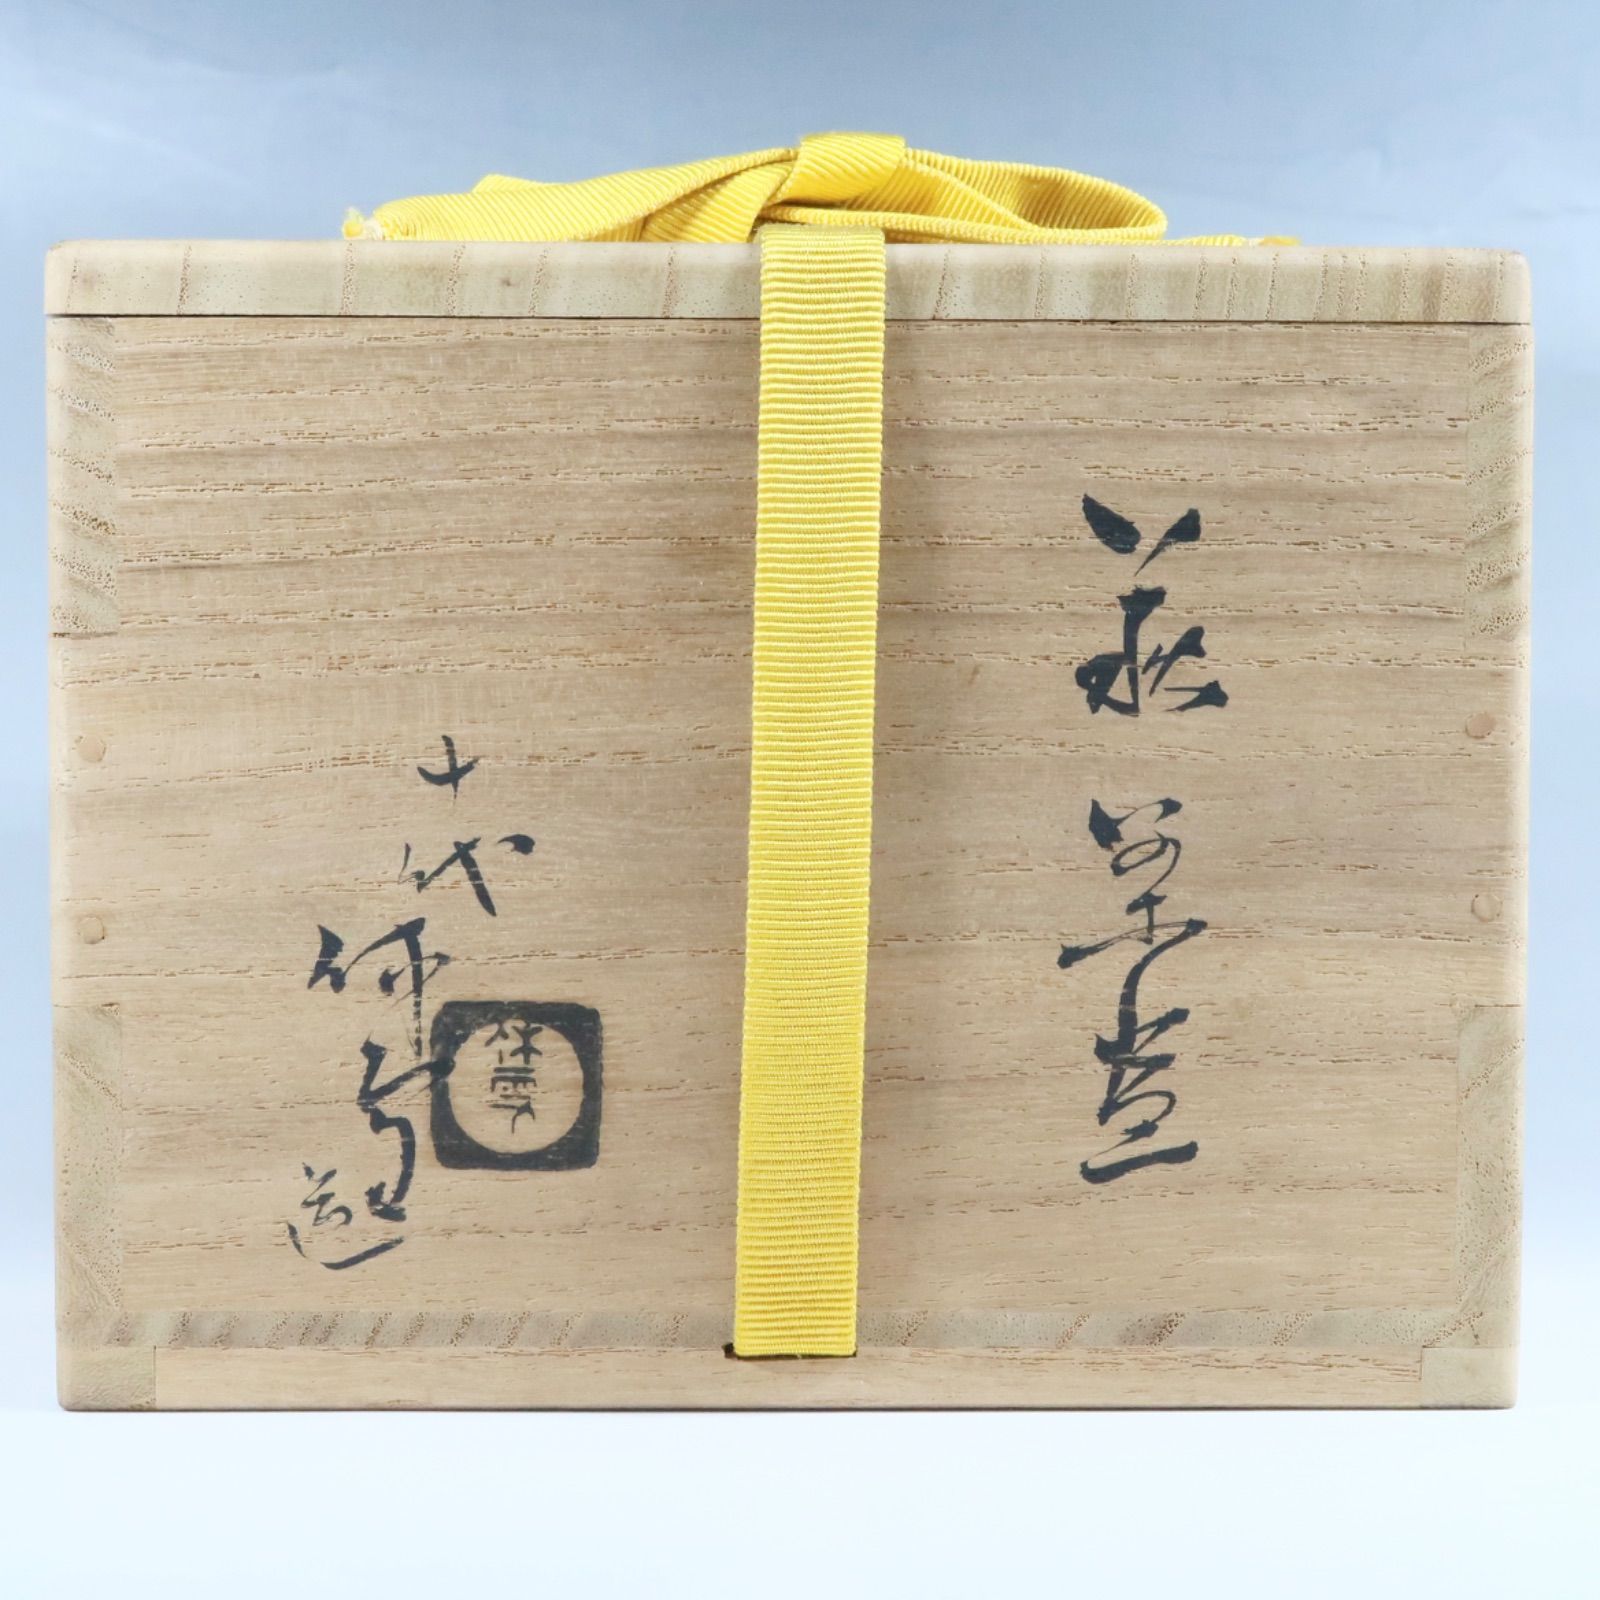 萩 茶盌
十代 休雪 造
休雪